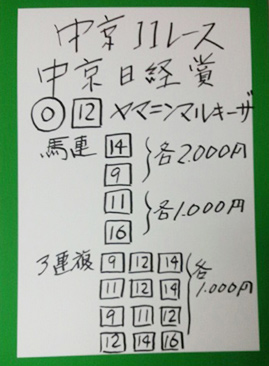 中京11レース
中京日経賞
◎ 12 ヤマニンマルキーザ
馬連 14
9 各2.000円
11
16 各1.000円
3連複 9 12 14 各
11 12 14 1.000円
9 11 12
12 14 16